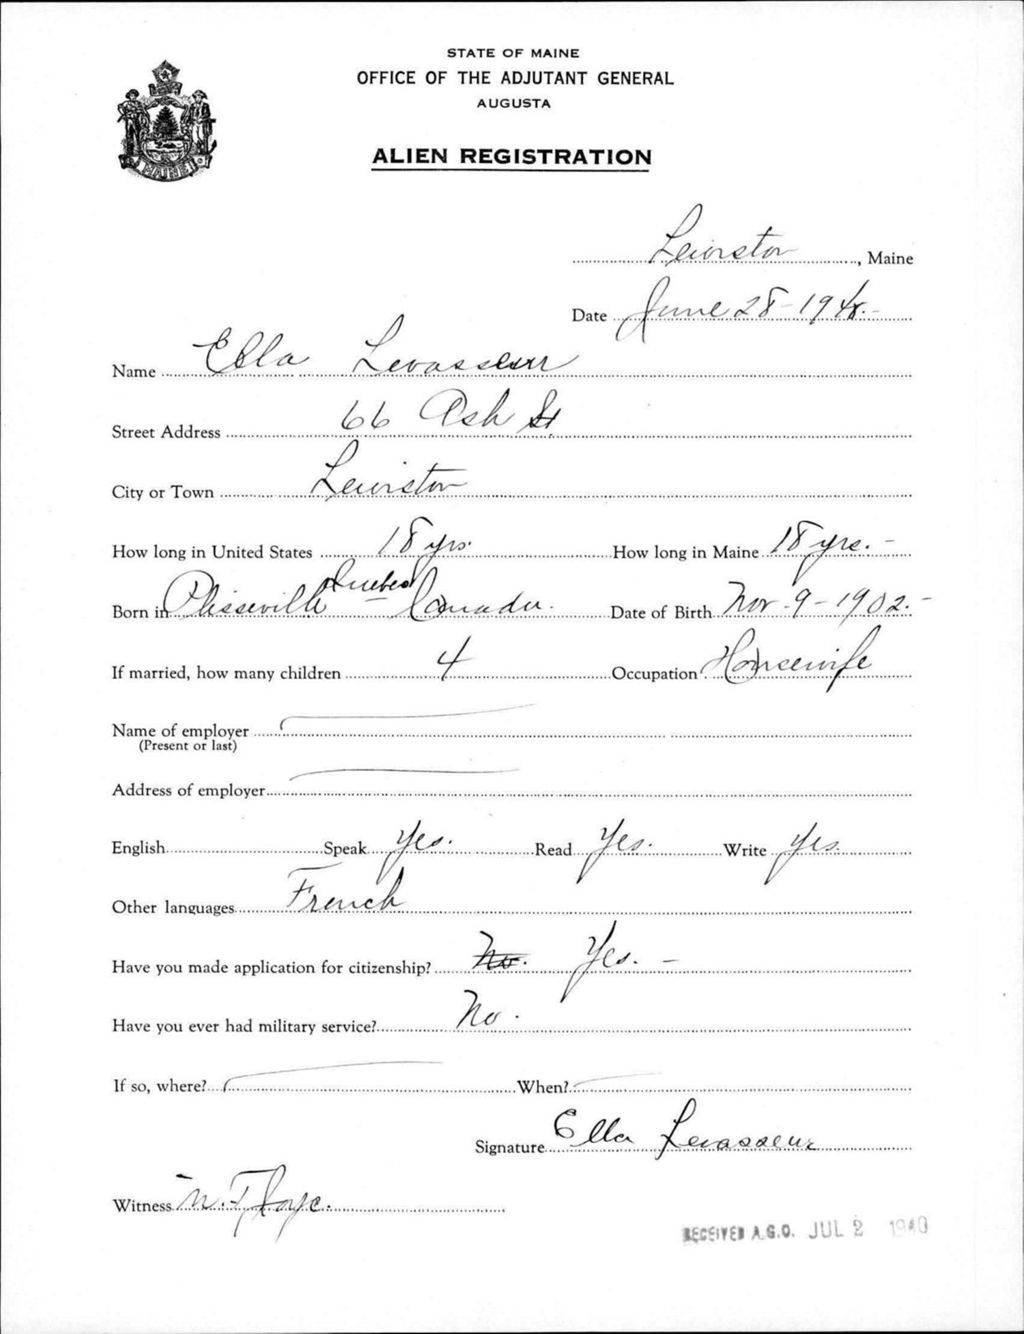 STATE OF MAINE
OFFICE OF THE ADJUTANT GENERAL
AUGUSTA
MAINE
ALIEN REGISTRATION
Lewiston, Maine
Date June 28-1940.-
Name Ella Levasseur
Street Address 66 Ash St
City or Town Lewiston
How long in United States 18 yrs. How long in Maine 18 yrs.-
Born in Plisseville Quebec Canada. Date of Birth Nov-9-1902.-
If married, how many children 4 Occupation Housewife
Name of employer
(Present or last)
Address of employer
English Speak Yes. Read Yes. Write Yes.
Other languages French
Have you made application for citizenship? No. Yes.-
Have you ever had military service? No.
If so, where? When?
Signature Ella Levasseur
Witness N. T.
RECEIVED A.G.O. JUL 2 1940